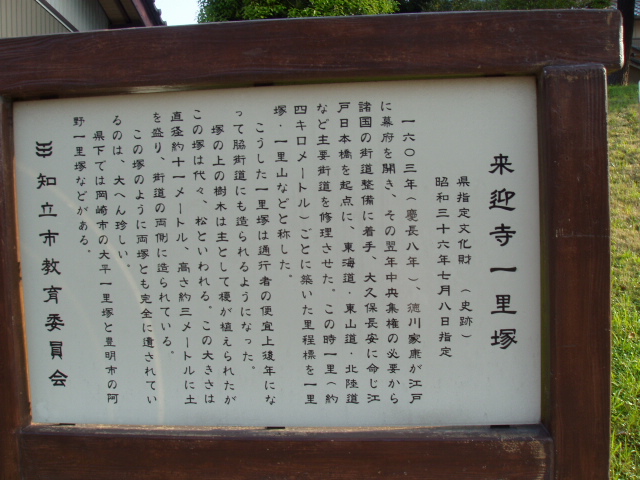 来迎寺一里塚
県指定文化財 （史跡）
昭和三十六年七月八日指定
一六〇三年（慶長八年）、徳川家康が江戸
に幕府を開き、その翌年中央集権の必要から
諸国の街道整備に着手、大久保長安に命じ江
戸日本橋を起点に、東海道・東山道・北陸道
など主要街道を修理させた。この時一里（約
四キロメートル）ごとに築いた里程標を一里
塚・一里山などと称した。
こうした一里塚は通行者の便宜上後年にな
って脇街道にも造られるようになった。
塚の上の樹木は主として榎が植えられたが
この塚は代々、松といわれる。この大きさは
直径約十一メートル、高さ約三メートルに土
を盛り、街道の両側に造られている。
この塚のように両塚とも完全に遺されてい
るのは、大へん珍しい。
県下では岡崎市の大平一里塚と豊明市の阿
野一里塚などがある。
知立市教育委員会